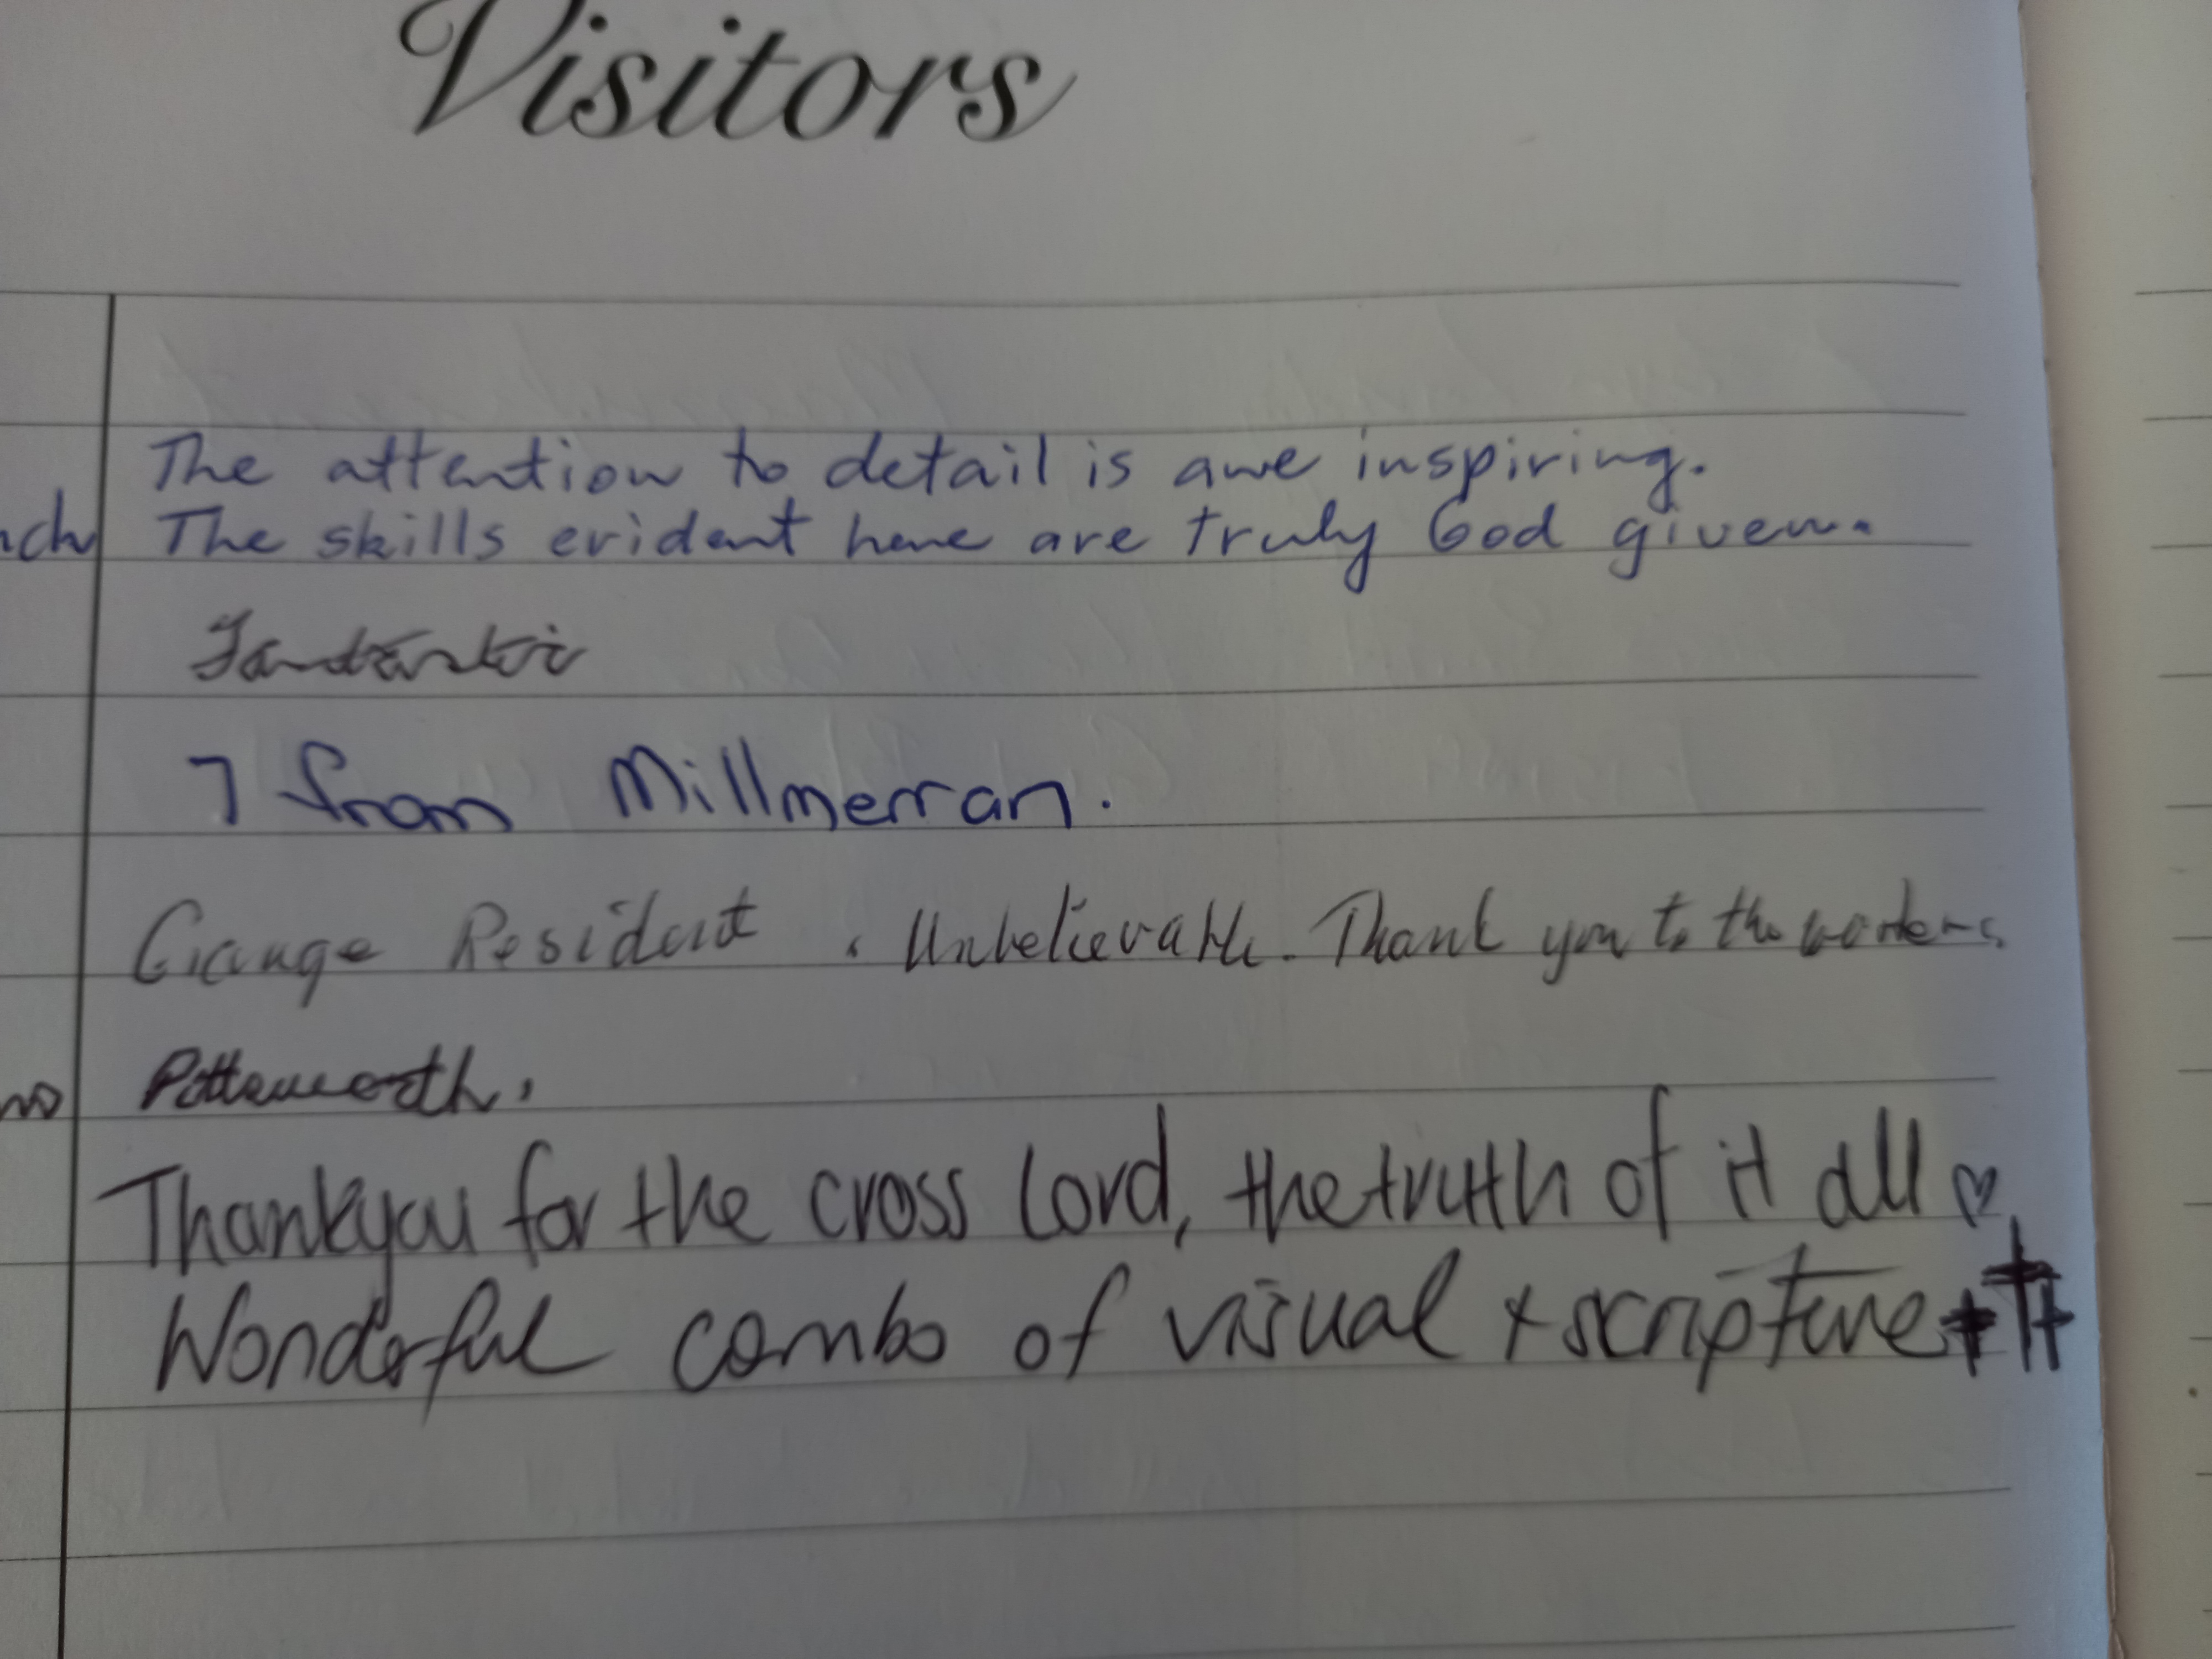 Visitors
The attention to detail is awe inspiring.
The skills evident here are truly God given.
Fantastic
7 from Millmerran.
Grange Resident. Unbelievable. Thank you to the workers.
Thankyou for the cross Lord, the truth of it all ♡
Wonderful combo of visual + scripture